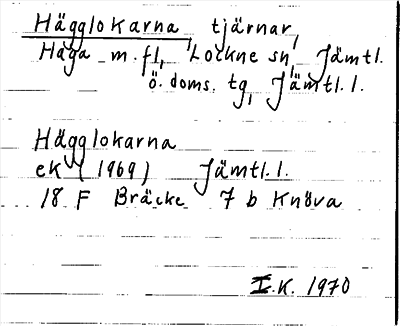 Hägglokarna, tjärnar,
Haga m. fl, Lockne sn, Jämtl.
ö. doms. tg, Jämtl. l.
Hägglokarna
ek (1969) Jämtl. l.
18 F Bräcke 7 b Knöva
I.K. 1970